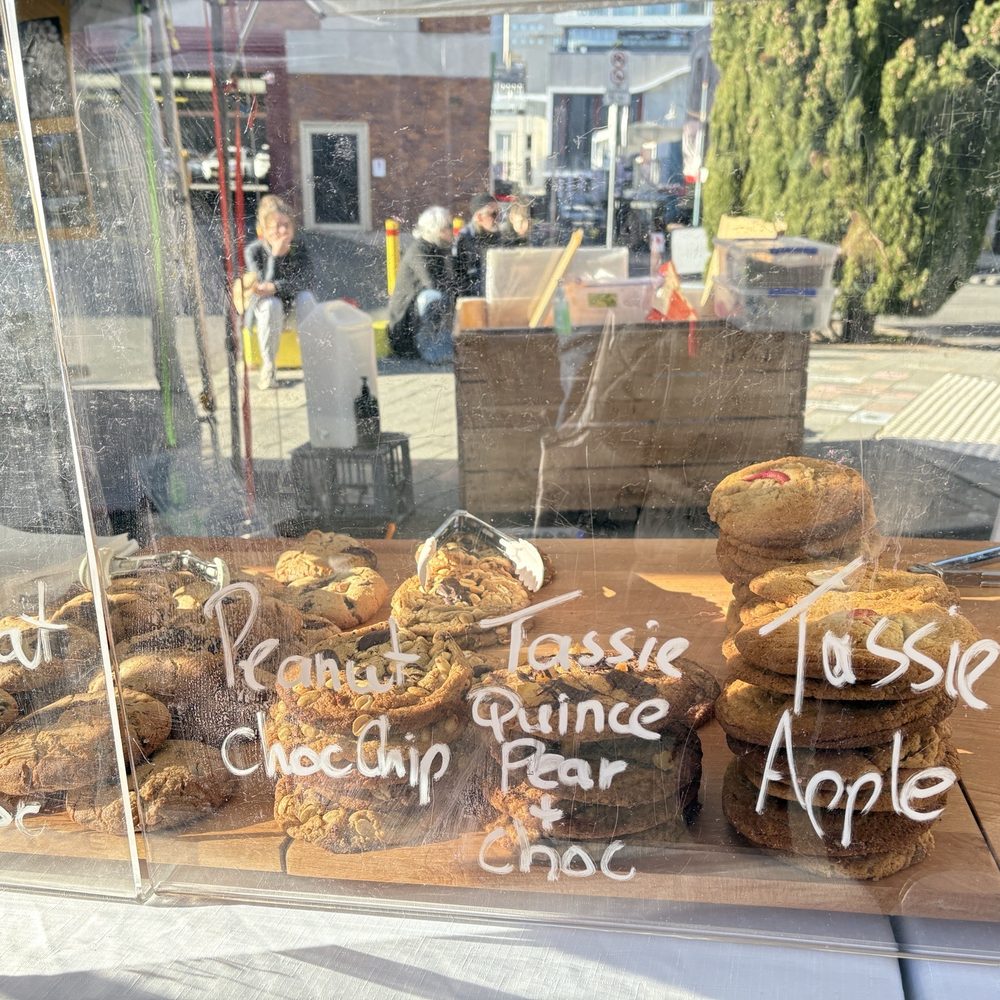 at
oc
Peanut
ChocChip
Tassie
Quince
Pear
+
Choc
Tassie
Apple